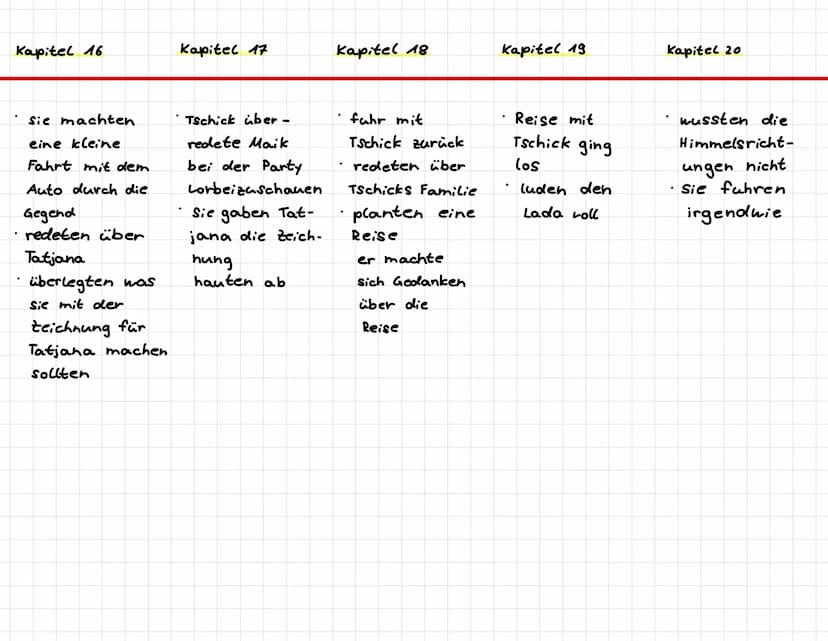 Kapitel 16
· sie machten
eine kleine
Fahrt mit dem
Auto durch die
Gegend
· redeten über
Tatjana
· überlegten was
sie mit der
Zeichnung für
Tatjana machen
sollten
Kapitel 17
· Tschick über-
redete Maik
bei der Party
vorbeizuschauen
· Sie gaben Tat-
jana die Zeich-
nung
hauten ab
Kapitel 18
· fuhr mit
Tschick zurück
· redeten über
Tschicks Familie
· planten eine
Reise
er machte
sich Gedanken
über die
Reise
Kapitel 19
· Reise mit
Tschick ging
los
· luden den
Lada voll
Kapitel 20
· wussten die
Himmelsricht-
ungen nicht
· sie fuhren
irgendwie